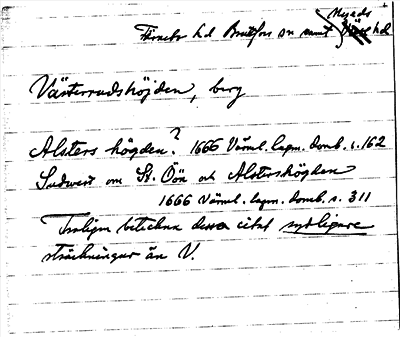 Nyeds
Färnebo hd Brattfors sn samt hd
Västerrudshöjden, berg
Alsters högden? 1666 Värml. lagm. domb. s. 162
Sudwest om St. Öön och Alstershögden
1666 Värml. lagm. domb. s. 311
Troligen beteckna dessa citat sydligare
sträckningar än V.